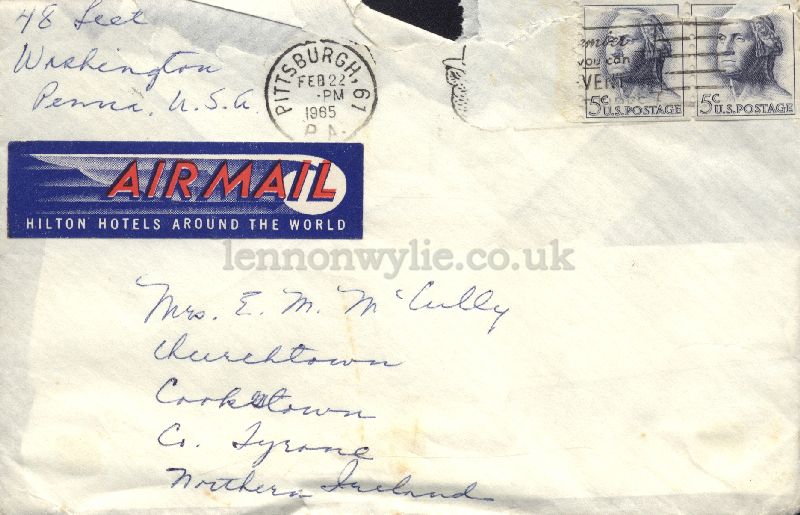 48 Leet
Washington
Penna, U.S.A.
PITTSBURGH, 61
FEB 22
-PM
1965
P.A.
ember
you can
-VENT
5¢ U.S.POSTAGE
5¢ U.S.POSTAGE
AIR MAIL
HILTON HOTELS AROUND THE WORLD
lennonwylie.co.uk
Mrs. E. M. McCully
Churchtown
Cookstown
Co. Tyrone
Northern Ireland